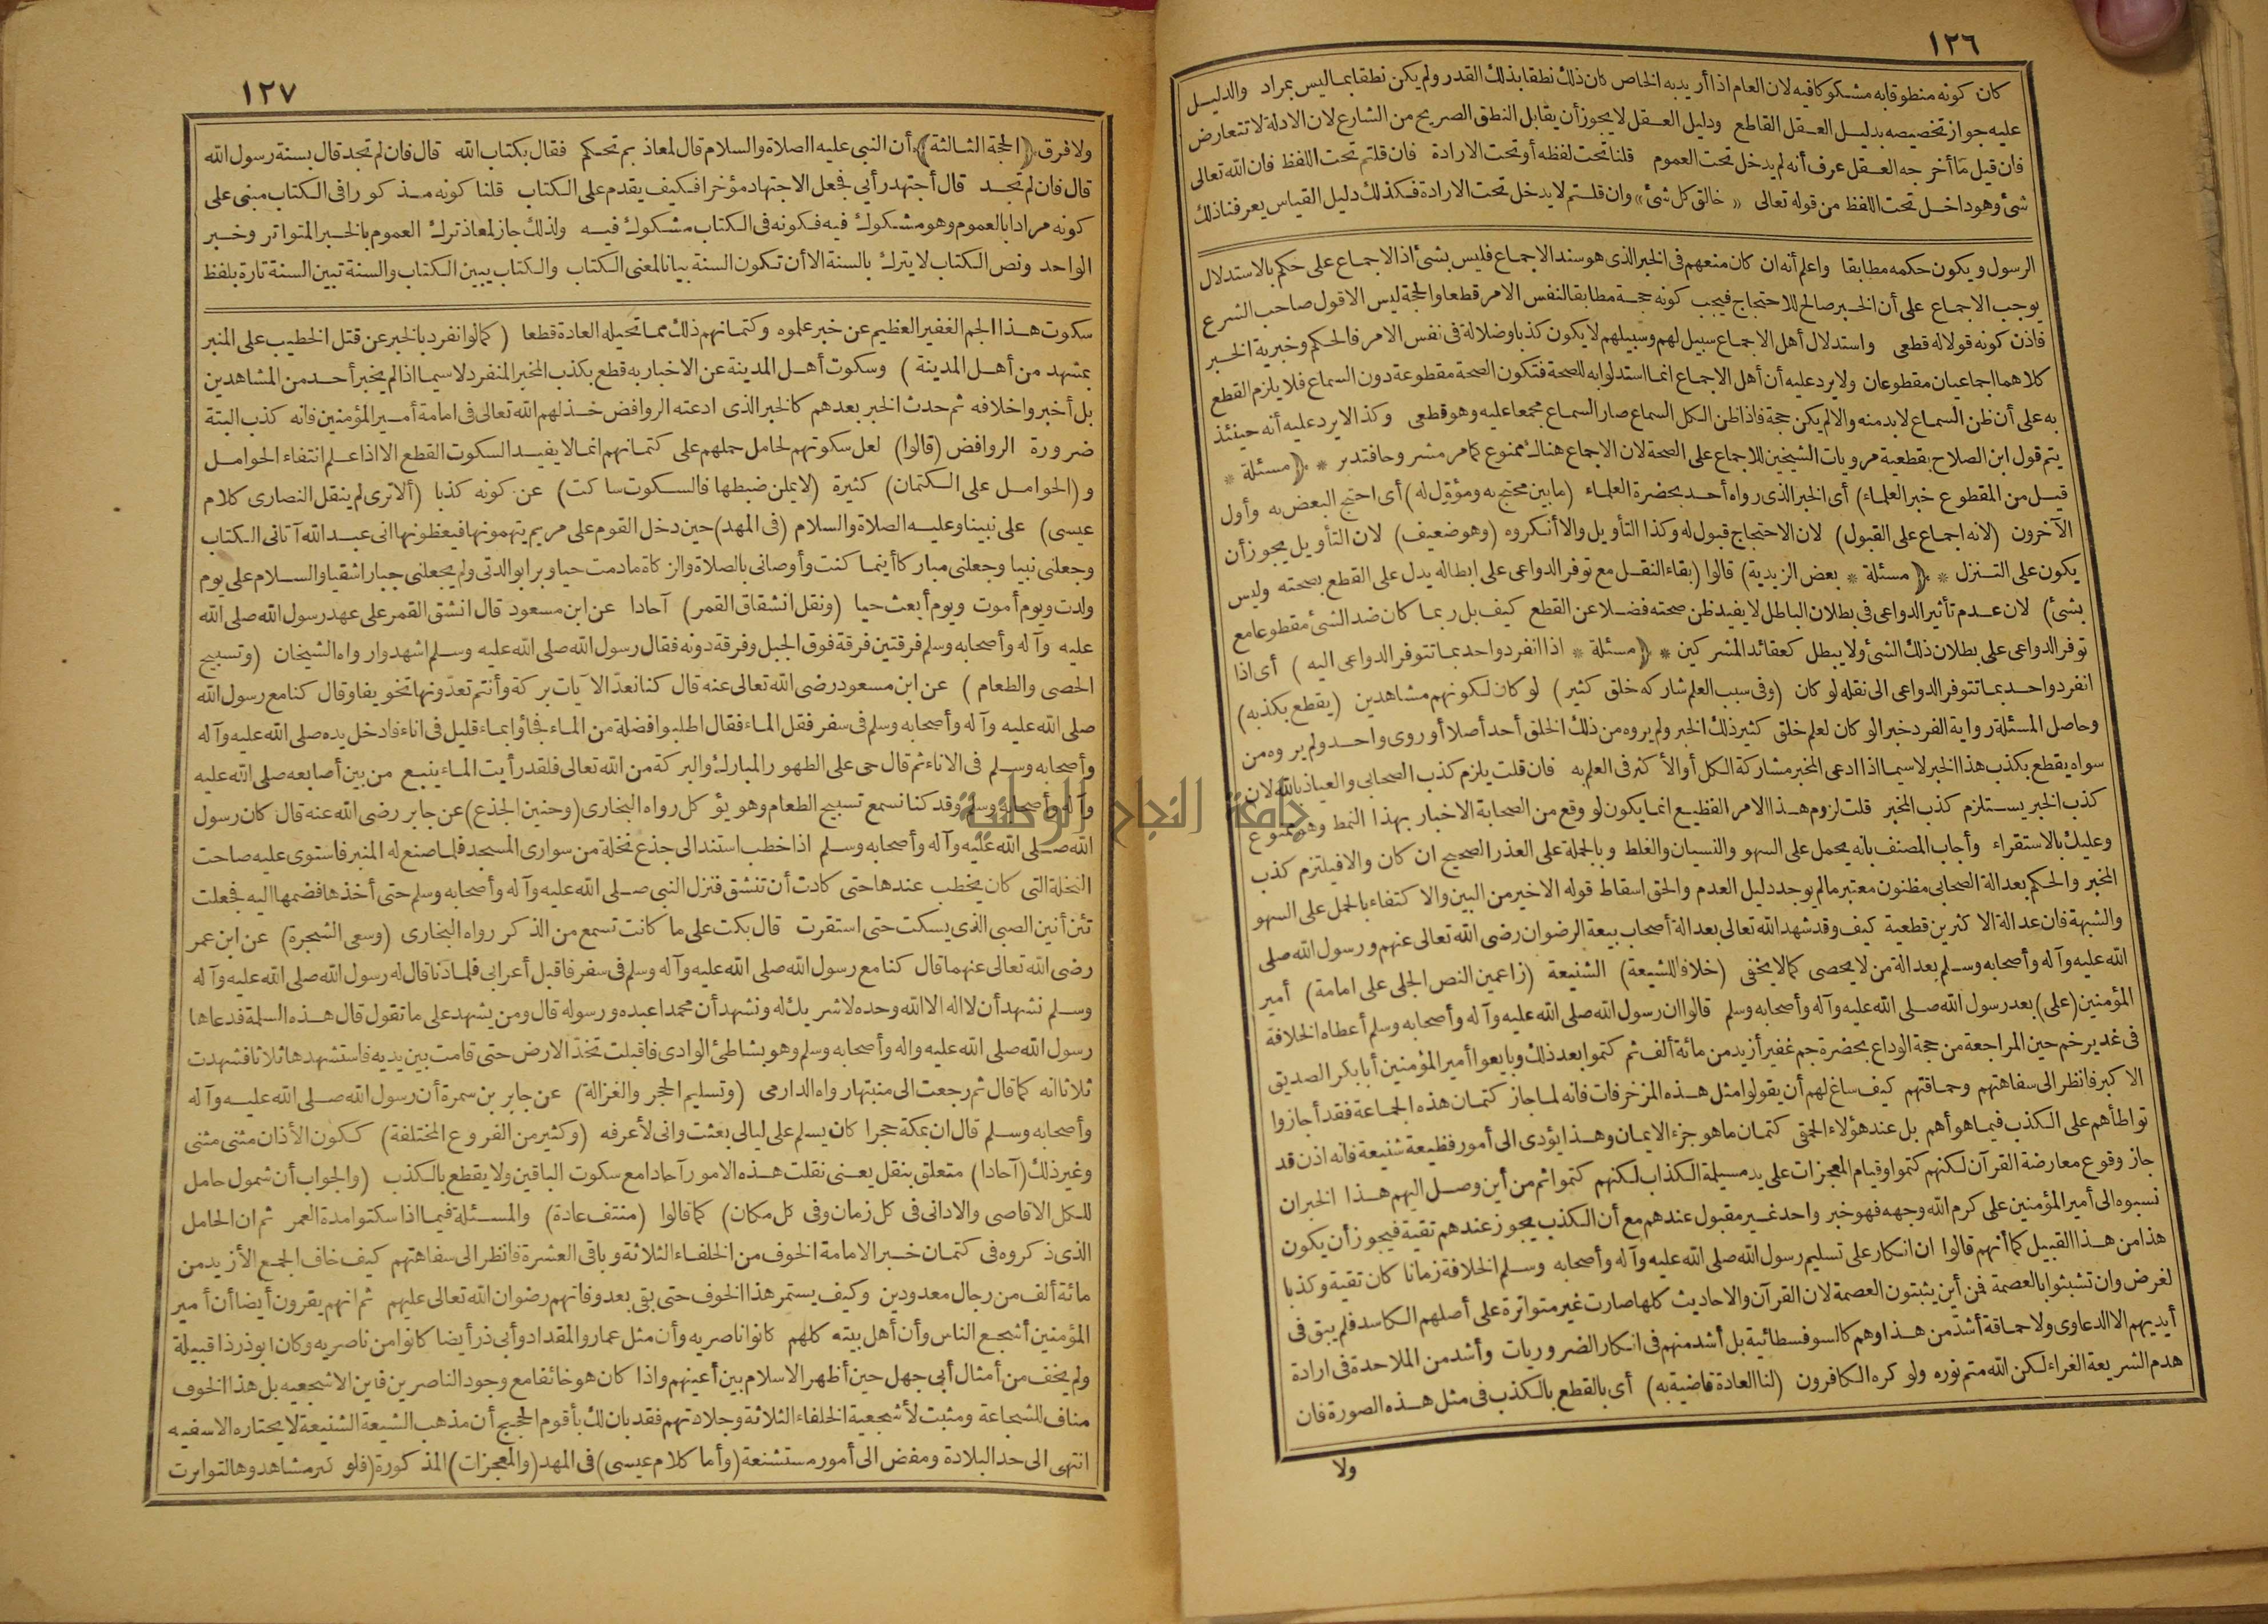 ١٢٦
كان كونه منطوقا به مشكوكا فيه لان العام اذا أريد به الخاص كان ذلك نطقا بذلك القدر ولم يكن نطقا بما ليس بمراد والدليل
عليه جواز تخصيصه بدليل العقل القاطع ودليل العقل لا يجوز أن يقابل النطق الصريح من الشارع لان الادلة لا تتعارض
فان قيل ما أخرجه العقل عرف أنه لم يدخل تحت العموم قلنا تحت لفظه أو تحت الارادة فان قلتم تحت اللفظ فان الله تعالى
شئ وهو داخل تحت اللفظ من قوله تعالى « خالق كل شئ » وان قلتم لا يدخل تحت الارادة فكذلك دليل القياس يعرفنا ذلك
الرسول ويكون حكمه مطابقا واعلم أنه ان كان منعهم فى الخبر الذى هو سند الاجماع فليس بشئ اذ الاجماع على حكم بالاستدلال
يوجب الاجماع على أن الخبر صالح للاحتجاج فيجب كونه حجة مطابقا لنفس الامر قطعا والحجة ليس الا قول صاحب الشرع
فاذن كونه قولا له قطعى واستدلال أهل الاجماع سبيل لهم وسبيلهم لا يكون كذبا وضلالة فى نفس الامر فالحكم وخبرية الخبر
كلاهما اجماعيان مقطوعان ولا يرد عليه أن أهل الاجماع انما استدلوا به للصحة فتكون الصحة مقطوعة دون السماع فلا يلزم القطع
به على أن ظن السماع لا بد منه والا لم يكن حجة فاذا ظن الكل السماع صار السماع مجمعا عليه وهو قطعى وكذا لا يرد عليه أنه حينئذ
يتم قول ابن الصلاح بقطعية مرويات الشيخين للاجماع على الصحة لان الاجماع هناك ممنوع كما مر مشروحا فتدبر * ﴿ مسئلة *
قيل من المقطوع خبر العلماء) أى الخبر الذى رواه أحد بحضرة العلماء (ما بين محتج به ومؤول له) أى احتج البعض به وأول
الآخرون (لانه اجماع على القبول) لان الاحتجاج قبول له وكذا التأويل والا أنكروه (وهو ضعيف) لان التأويل يجوز أن
يكون على التنزل * ﴿ مسئلة * بعض الزيدية) قالوا (بقاء النقل مع توفر الدواعى على ابطاله يدل على القطع بصحته وليس
بشئ) لان عدم تأثير الدواعى فى بطلان الباطل لا يفيد ظن صحته فضلا عن القطع كيف بل ربما كان ضد الشئ مقطوعا مع
توفر الدواعى على بطلان ذلك الشئ ولا يبطل كعقائد المشركين * ﴿ مسئلة * اذا انفرد واحد بما تتوفر الدواعى اليه ) أى اذا
انفرد واحد بما تتوفر الدواعى الى نقله لو كان (وفى سبب العلم شاركه خلق كثير) لو كان لكونهم مشاهدين (يقطع بكذبه)
وحاصل المسئلة رواية الفرد خبرا لو كان لعلم خلق كثير ذلك الخبر ولم يروه من ذلك الخلق أحد أصلا أو روى واحد ولم يروه من
سواه يقطع بكذب هذا الخبر لا سيما اذا ادعى المخبر مشاركة الكل أو الأكثر فى العلم به فان قلت يلزم كذب الصحابى والعياذ بالله لان
كذب الخبر يستلزم كذب المخبر قلت لزوم هذا الامر الفظيع انما يكون لو وقع من الصحابة الاخبار بهذا النمط وهو ممنوع
وعليك بالاستقراء وأجاب المصنف بانه يحمل على السهو والنسيان والغلط وبالجملة على العذر الصحيح ان كان والا فيلتزم كذب
المخبر والحكم بعدالة الصحابى مظنون معتبر ما لم يوجد دليل العدم والحق اسقاط قوله الاخير من البين والاكتفاء بالحمل على السهو
والشبهة فان عدالة الاكثرين قطعية كيف وقد شهد الله تعالى بعدالة أصحاب بيعة الرضوان رضى الله تعالى عنهم ورسول الله صلى
الله عليه وآله وأصحابه وسلم بعدالة من لا يحصى كما لا يخفى (خلافا للشيعة) الشنيعة (زاعمين النص الجلى على امامة) أمير
المؤمنين (على) بعد رسول الله صلى الله عليه وآله وأصحابه وسلم قالوا ان رسول الله صلى الله عليه وآله وأصحابه وسلم أعطاه الخلافة
فى غدير خم حين المراجعة من حجة الوداع بحضرة جم غفير أزيد من مائة ألف ثم كتموا بعد ذلك وبايعوا أمير المؤمنين أبا بكر الصديق
الاكبر فانظر الى سفاهتهم وحماقتهم كيف ساغ لهم أن يقولوا مثل هذه المزخرفات فانه لما جاز كتمان هذه الجماعة فقد أجازوا
تواطأهم على الكذب فيما هو أهم بل عند هؤلاء الحمقى كتمان ما هو جزء الايمان وهذا يؤدى الى أمور فظيعة شنيعة فانه اذن قد
جاز وقوع معارضة القرآن لكنهم كتموا وقيام المعجزات على يد مسيلمة الكذاب لكنهم كتموا ثم من أين وصل اليهم هذا الخبر ان
نسبوه الى أمير المؤمنين على كرم الله وجهه فهو خبر واحد غير مقبول عندهم مع أن الكذب يجوز عندهم تقية فيجوز أن يكون
هذا من هذا القبيل كما أنهم قالوا ان انكار على تسليم رسول الله صلى الله عليه وآله وأصحابه وسلم الخلافة زمانا كان تقية وكذبا
لغرض وان تشبثوا بالعصمة فمن أين يثبتون العصمة لان القرآن والاحاديث كلها صارت غير متواترة على أصلهم الكاسد فلم يبق فى
أيديهم الا الدعاوى ولا حماقة أشد من هذا وهم كالسوفسطائية بل أشد منهم فى انكار الضروريات وأشد من الملاحدة فى ارادة
هدم الشريعة الغراء لكن الله متم نوره ولو كره الكافرون (لنا العادة قاضية به) أى بالقطع بالكذب فى مثل هذه الصورة فان
ولا
١٢٧
ولا فرق ﴿الحجة الثالثة﴾ أن النبى عليه الصلاة والسلام قال لمعاذ بم تحكم فقال بكتاب الله قال فان لم تجد قال بسنة رسول الله
قال فان لم تجد قال أجتهد رأيى فجعل الاجتهاد مؤخرا فكيف يقدم على الكتاب قلنا كونه مذكورا فى الكتاب مبنى على
كونه مرادا بالعموم وهو مشكوك فيه فكونه فى الكتاب مشكوك فيه ولذلك جاز لمعاذ ترك العموم بالخبر المتواتر وخبر
الواحد ونص الكتاب لا يترك بالسنة الا أن تكون السنة بيانا لمعنى الكتاب والكتاب يبين الكتاب والسنة تبين السنة تارة بلفظ
سكوت هذا الجم الغفير العظيم عن خبر علموه وكتمانهم ذلك مما تحيله العادة قطعا (كما لو انفرد بالخبر عن قتل الخطيب على المنبر
بمشهد من أهل المدينة ) وسكوت أهل المدينة عن الاخبار به قطع بكذب المخبر المنفرد لا سيما اذا لم يخبر أحد من المشاهدين
بل أخبروا خلافه ثم حدث الخبر بعدهم كالخبر الذى ادعته الروافض خذلهم الله تعالى فى امامة أمير المؤمنين فانه كذب البتة
ضرورة الروافض (قالوا) لعل سكوتهم لحامل حملهم على كتمانهم انما لا يفيد السكوت القطع الا اذا علم انتفاء الحوامل
و (الحوامل على الكتمان) كثيرة (لا يمكن ضبطها فالسكوت ساكت) عن كونه كذبا (ألا ترى لم ينقل النصارى كلام
عيسى) على نبينا وعليه الصلاة والسلام (فى المهد) حين دخل القوم على مريم يتهمونها فيعظونها انى عبد الله آتانى الكتاب
وجعلنى نبيا وجعلنى مباركا أينما كنت وأوصانى بالصلاة والزكاة ما دمت حيا وبرا بوالدتى ولم يجعلنى جبارا شقيا والسلام على يوم
ولدت ويوم أموت ويوم أبعث حيا (ونقل انشقاق القمر) آحادا عن ابن مسعود قال انشق القمر على عهد رسول الله صلى الله
عليه وآله وأصحابه وسلم فرقتين فرقة فوق الجبل وفرقة دونه فقال رسول الله صلى الله عليه وسلم اشهدوا رواه الشيخان (وتسبيح
الحصى والطعام ) عن ابن مسعود رضى الله تعالى عنه قال كنا نعد الآيات بركة وأنتم تعدونها تخويفا وقال كنا مع رسول الله
صلى الله عليه وآله وأصحابه وسلم فى سفر فقل الماء فقال اطلبوا فضلة من الماء فجاؤا بماء قليل فى اناء فادخل يده صلى الله عليه وآله
وأصحابه وسلم فى الاناء ثم قال حى على الطهور المبارك والبركة من الله تعالى فلقد رأيت الماء ينبع من بين أصابعه صلى الله عليه
وآله وأصحابه وسلم وقد كنا نسمع تسبيح الطعام وهو يؤكل رواه البخارى (وحنين الجذع) عن جابر رضى الله عنه قال كان رسول
الله صلى الله عليه وآله وأصحابه وسلم اذا خطب استند الى جذع نخلة من سوارى المسجد فلما صنع له المنبر فاستوى عليه صاحت
النخلة التى كان يخطب عندها حتى كادت أن تنشق فنزل النبى صلى الله عليه وآله وأصحابه وسلم حتى أخذها فضمها اليه فجعلت
تئن أنين الصبى الذى يسكت حتى استقرت قال بكت على ما كانت تسمع من الذكر رواه البخارى (وسعى الشجرة) عن ابن عمر
رضى الله تعالى عنهما قال كنا مع رسول الله صلى الله عليه وآله وسلم فى سفر فاقبل أعرابى فلما دنا قال له رسول الله صلى الله عليه وآله
وسلم نشهد أن لا اله الا الله وحده لا شريك له ونشهد أن محمدا عبده ورسوله قال ومن يشهد على ما تقول قال هذه السلمة فدعاها
رسول الله صلى الله عليه واله وأصحابه وسلم وهو بشاطئ الوادى فاقبلت تخد الارض حتى قامت بين يديه فاستشهدها ثلاثا فشهدت
ثلاثا انه كما قال ثم رجعت الى منبتها رواه الدارمى (وتسليم الحجر والغزالة) عن جابر بن سمرة أن رسول الله صلى الله عليه وآله
وأصحابه وسلم قال ان بمكة حجرا كان يسلم على ليالى بعثت وانى لأعرفه (وكثير من الفروع المختلفة) ككون الأذان مثنى مثنى
وغير ذلك (آحادا) متعلق بنقل يعنى نقلت هذه الامور آحادا مع سكوت الباقين ولا يقطع بالكذب (والجواب أن شمول حامل
للكل الاقاصى والادانى فى كل زمان وفى كل مكان) كما قالوا (منتف عادة) والمسئلة فيما اذا سكتوا مدة العمر ثم ان الحامل
الذى ذكروه فى كتمان خبر الامامة الخوف من الخلفاء الثلاثة وباقى العشرة فانظر الى سفاهتهم كيف خاف الجمع الأزيد من
مائة ألف من رجال معدودين وكيف يستمر هذا الخوف حتى بقى بعد وفاتهم رضوان الله تعالى عليهم ثم انهم يقرون أيضا أن أمير
المؤمنين أشجع الناس وأن أهل بيته كلهم كانوا ناصريه وأن مثل عمار والمقداد وأبى ذر أيضا كانوا من ناصريه وكان ابو ذر ذا قبيلة
ولم يخف من أمثال أبى جهل حين أظهر الاسلام بين أعينهم واذا كان هو خائفا مع وجود الناصرين فاين الاشجعيه بل هذا الخوف
مناف للشجاعة ومثبت لأشجعية الخلفاء الثلاثة وجلادتهم فقد بان لك بأقوم الحجج أن مذهب الشيعة الشنيعة لا يختاره الا سفيه
انتهى الى حد البلادة ومفض الى أمور مستشنعة (وأما كلام عيسى) فى المهد (والمعجزات) المذكورة (فلو كثر مشاهدوها لتواترت
جامعة النجاح الوطنية